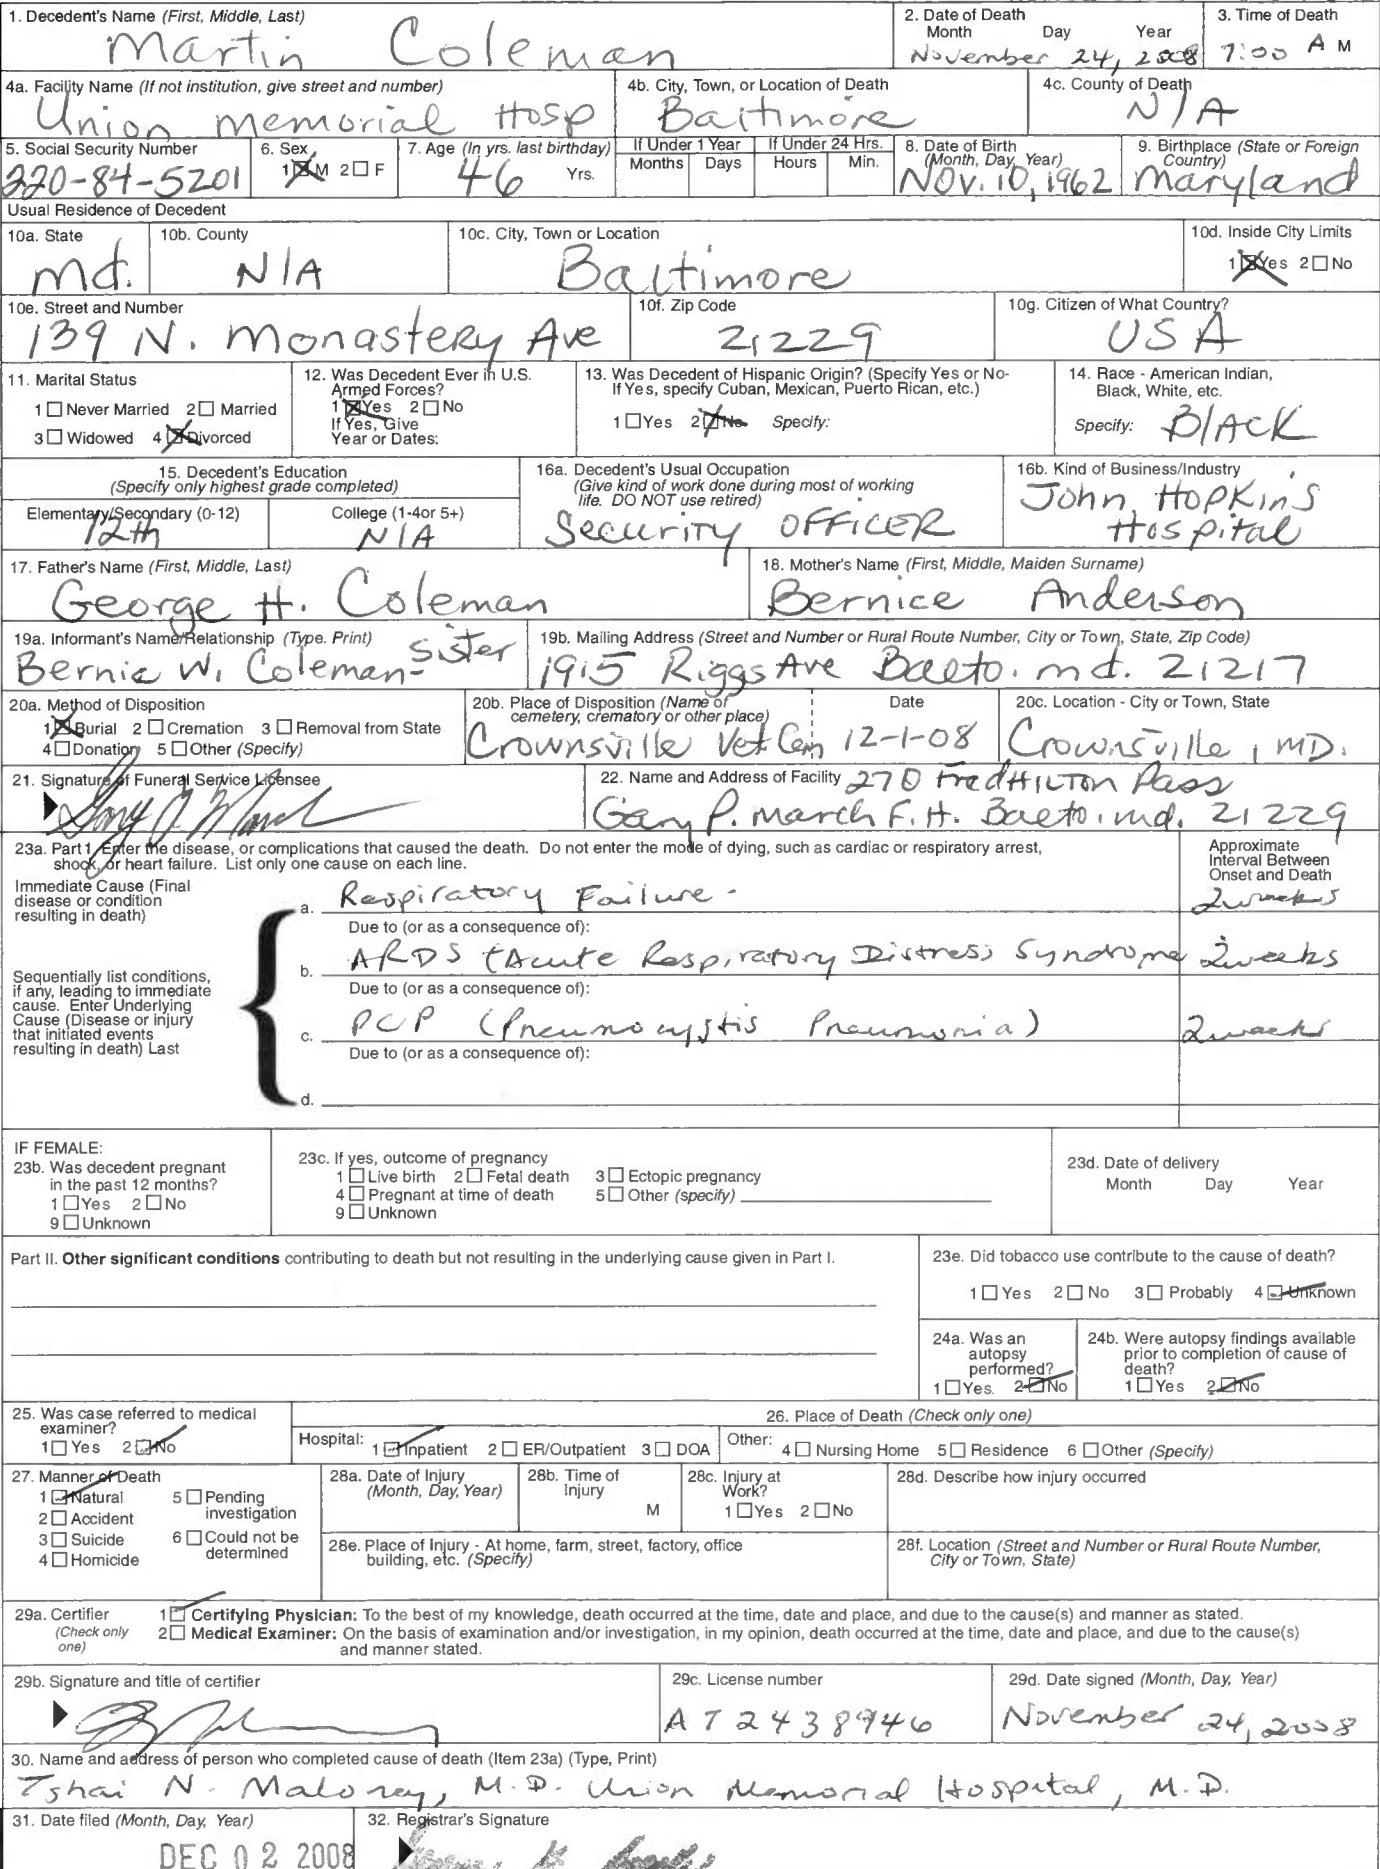 1. Decedent's Name (First, Middle, Last)
Martin Coleman
2. Date of Death
Month Day Year
November 24, 2008
3. Time of Death
7:00 A M
4a. Facility Name (If not institution, give street and number)
Union Memorial Hosp
4b. City, Town, or Location of Death
Baltimore
4c. County of Death
N/A
5. Social Security Number
220-84-5201
6. Sex
1 M 2 F
7. Age (In yrs. last birthday)
46 Yrs.
If Under 1 Year
Months Days
If Under 24 Hrs.
Hours Min.
8. Date of Birth
(Month, Day, Year)
Nov. 10, 1962
9. Birthplace (State or Foreign
Country)
Maryland
Usual Residence of Decedent
10a. State
Md.
10b. County
N/A
10c. City, Town or Location
Baltimore
10d. Inside City Limits
1 Yes 2 No
10e. Street and Number
139 N. Monastery Ave
10f. Zip Code
21229
10g. Citizen of What Country?
USA
11. Marital Status
1 Never Married 2 Married
3 Widowed 4 Divorced
12. Was Decedent Ever in U.S.
Armed Forces?
1 Yes 2 No
If Yes, Give
Year or Dates:
13. Was Decedent of Hispanic Origin? (Specify Yes or No-
If Yes, specify Cuban, Mexican, Puerto Rican, etc.)
1 Yes 2 No Specify:
14. Race - American Indian,
Black, White, etc.
Specify: BlACK
15. Decedent's Education
(Specify only highest grade completed)
Elementary/Secondary (0-12)
12th
College (1-4or 5+)
N/A
16a. Decedent's Usual Occupation
(Give kind of work done during most of working
life. DO NOT use retired)
Security OFFICER
16b. Kind of Business/Industry
John HOPKins
Hospital
17. Father's Name (First, Middle, Last)
George H. Coleman
18. Mother's Name (First, Middle, Maiden Surname)
Bernice Anderson
19a. Informant's Name/Relationship (Type. Print)
Bernie W. Coleman- Sister
19b. Mailing Address (Street and Number or Rural Route Number, City or Town, State, Zip Code)
1915 Riggs Ave Balto. md. 21217
20a. Method of Disposition
1 Burial 2 Cremation 3 Removal from State
4 Donation 5 Other (Specify)
20b. Place of Disposition (Name of
cemetery, crematory or other place)
Crownsville Vet Cem
Date
12-1-08
20c. Location - City or Town, State
Crownsville, MD.
21. Signature of Funeral Service Licensee
22. Name and Address of Facility 270 FredHILTON Pass
Gary P. March F.H. Balto. md. 21229
23a. Part 1. Enter the disease, or complications that caused the death. Do not enter the mode of dying, such as cardiac or respiratory arrest,
shock, or heart failure. List only one cause on each line.
Approximate
Interval Between
Onset and Death
Immediate Cause (Final
disease or condition
resulting in death)
a. Respiratory Failure - 2 weeks
Due to (or as a consequence of):
b. ARDS (Acute Respiratory Distress Syndrome 2 weeks
Sequentially list conditions,
if any, leading to immediate
cause. Enter Underlying
Cause (Disease or injury
that initiated events
resulting in death) Last
Due to (or as a consequence of):
c. PCP (Pneumocystis Pneumonia) 2 weeks
Due to (or as a consequence of):
d.
IF FEMALE:
23b. Was decedent pregnant
in the past 12 months?
1 Yes 2 No
9 Unknown
23c. If yes, outcome of pregnancy
1 Live birth 2 Fetal death 3 Ectopic pregnancy
4 Pregnant at time of death 5 Other (specify)
9 Unknown
23d. Date of delivery
Month Day Year
Part II. Other significant conditions contributing to death but not resulting in the underlying cause given in Part I.
23e. Did tobacco use contribute to the cause of death?
1 Yes 2 No 3 Probably 4 Unknown
24a. Was an
autopsy
performed?
1 Yes. 2 No
24b. Were autopsy findings available
prior to completion of cause of
death?
1 Yes 2 No
25. Was case referred to medical
examiner?
1 Yes 2 No
26. Place of Death (Check only one)
Hospital: 1 Inpatient 2 ER/Outpatient 3 DOA
Other: 4 Nursing Home 5 Residence 6 Other (Specify)
27. Manner of Death
1 Natural 5 Pending
investigation
2 Accident
3 Suicide 6 Could not be
determined
4 Homicide
28a. Date of Injury
(Month, Day, Year)
28b. Time of
Injury
M
28c. Injury at
Work?
1 Yes 2 No
28d. Describe how injury occurred
28e. Place of Injury - At home, farm, street, factory, office
building, etc. (Specify)
28f. Location (Street and Number or Rural Route Number,
City or Town, State)
29a. Certifier
(Check only
one)
1 Certifying Physician: To the best of my knowledge, death occurred at the time, date and place, and due to the cause(s) and manner as stated.
2 Medical Examiner: On the basis of examination and/or investigation, in my opinion, death occurred at the time, date and place, and due to the cause(s)
and manner stated.
29b. Signature and title of certifier
29c. License number
AT2438946
29d. Date signed (Month, Day, Year)
November 24, 2008
30. Name and address of person who completed cause of death (Item 23a) (Type, Print)
Tshai N. Maloney, M.D. Union Memorial Hospital, M.D.
31. Date filed (Month, Day, Year)
DEC 02 2008
32. Registrar's Signature